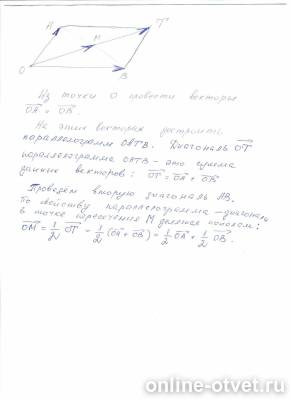 A
T
M
O
B
Из точки O провести векторы
OA и OB.
На этих векторах построить
параллелограмм OATB. Диагональ OT
параллелограмма OATB - это сумма
данных векторов: OT = OA + OB
Проведём вторую диагональ AB.
По свойству параллелограмма - диагонали
в точке пересечения M делятся пополам:
OM = 1/2 OT = 1/2 (OA + OB) = 1/2 OA + 1/2 OB.
online-otvet.ru